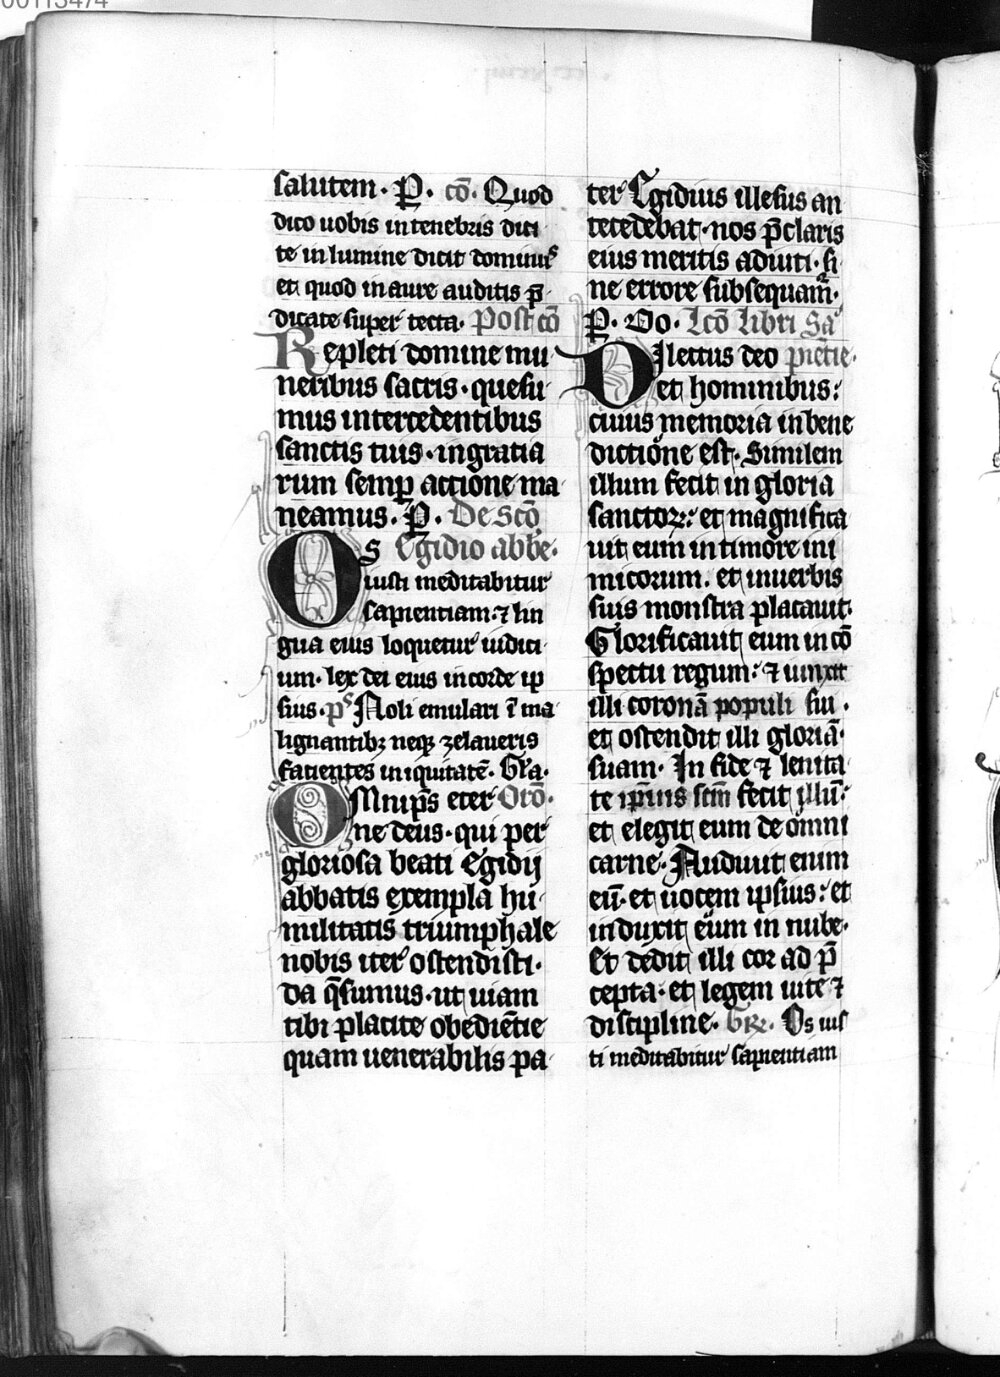 salutem · P̲ · cō · Quod
dico uobis in tenebris dici
te in lumine dicit dominus
et quod in aure auditis p̄
dicate super tecta · Post cō
Repleti domine mu
neribus sacris · quesu
mus intercedentibus
sanctis tuis · in gratia
rum semꝑ actione ma
neamus · P̲ · De Scō
Os Egidio abbe ·
iusti meditabitur
sapientiam · ⁊ lin
gua eius loquetur iudici
um · lex dei eius in corde ip
sius · ps Noli emulari ī ma
lignantibꝫ neqꝫ zelaueris
facientes iniquitatē · Gła ·
OMnip̄s eter Orō ·
ne deus · qui per
gloriosa beati Egidij
abbatis exempla hu
militatis triumphale
nobis iter ostendisti ·
da q̄sumus · ut uiam
tibi placite obediētie
quam uenerabilis pa
ter Egidius illesus an
tecedebat · nos p̄claris
eius meritis adiuti · si
ne errore subsequam̄ ·
P̲ · Do · Lcō Libri Sa
DIlectus deo piētie ·
et hominibus :
cuius memoria in bene
dictione est · Similem
illum fecit in gloria
sanctoꝝ : et magnifica
uit eum in timore ini
micorum · et in uerbis
suis monstra placauit ·
Glorificauit eum in cō
spectu regum : ⁊ iunxit
illi coronā populi sui ·
et ostendit illi gloriā ·
suam · In fide ⁊ lenita
te ip̄ius scm̄ fecit illū :
et elegit eum de omni
carne · Audiuit enim
eū · et uocem ipsius : et
induxit eum in nube ·
Et dedit illi cor ad p̄
cepta · et legem uite ⁊
discipline · Gr̄ · Os ius
ti meditabitur sapientiam